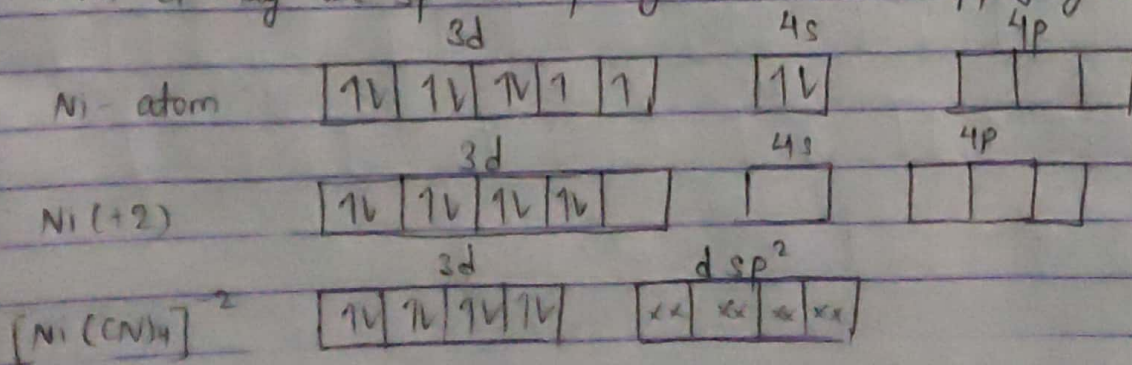 3d 4s 4p
Ni - atom 1L 1L 1L 1 1 1L
3d 4s 4p
Ni (+2) 1L 1L 1L 1L
3d dsp²
[Ni (CN)4]² 1L 1L 1L 1L xx xx xx xx